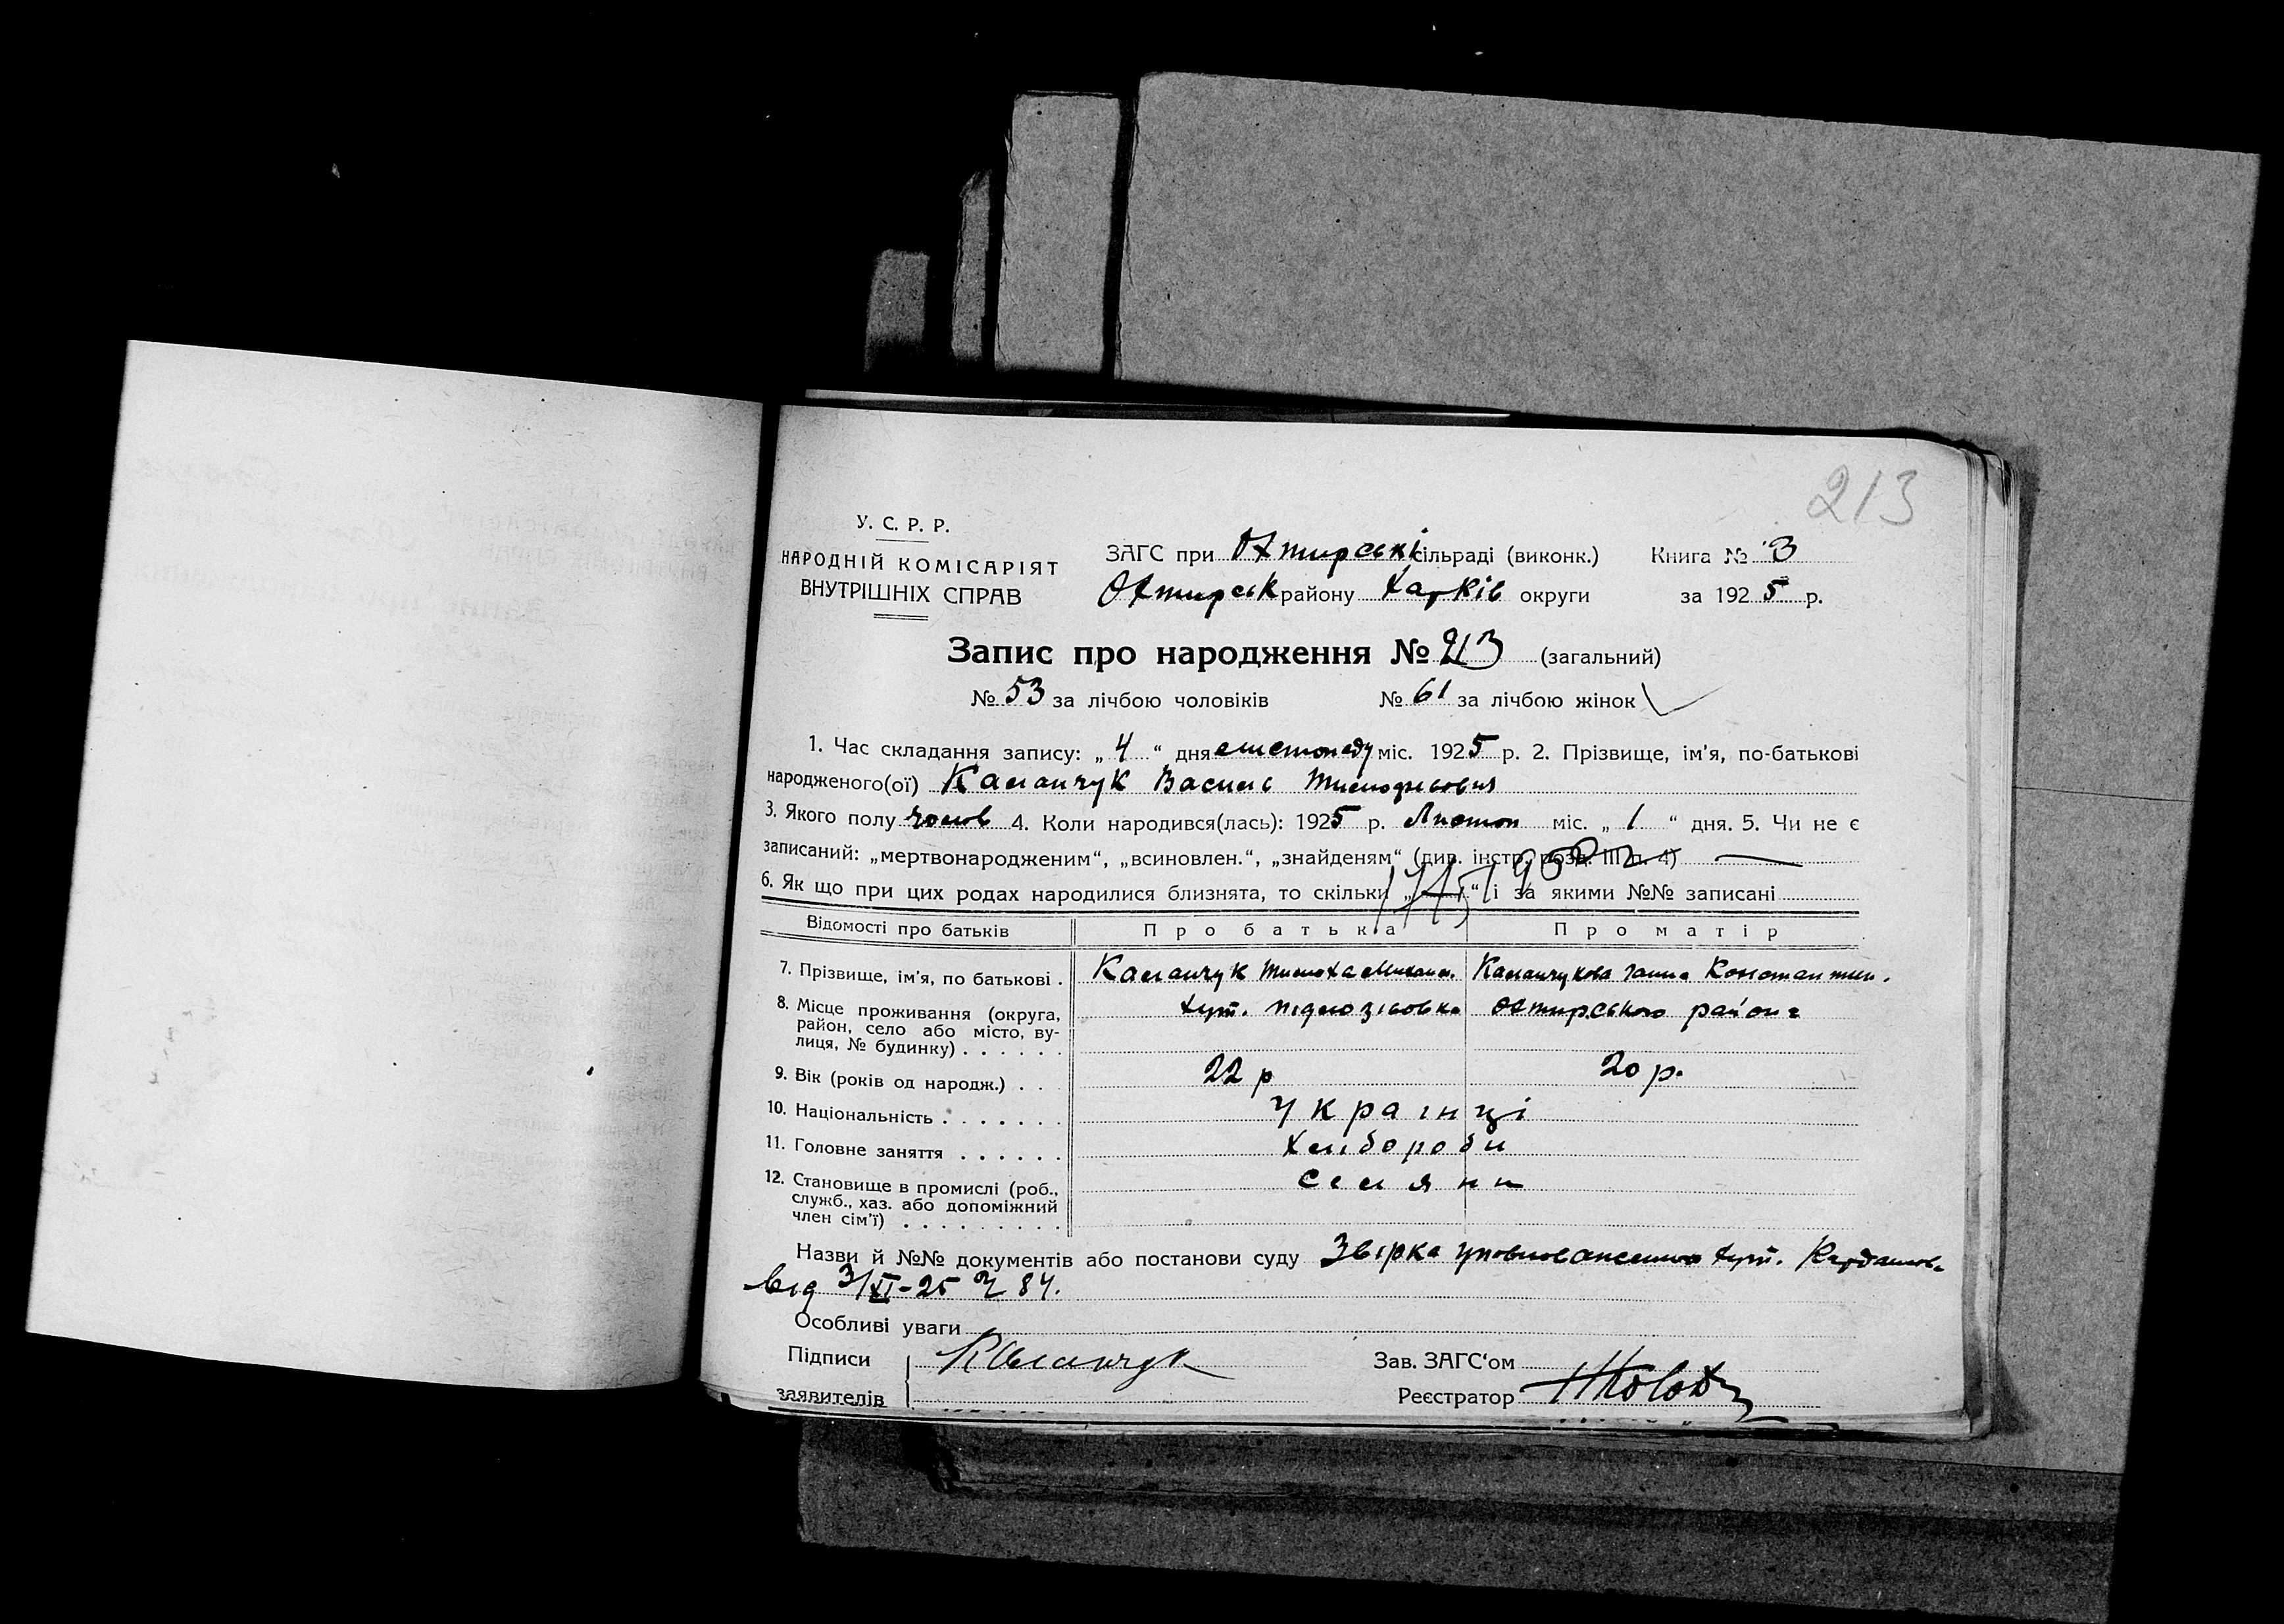 213
У. С. Р. Р.
НАРОДНІЙ КОМІСАРІЯТ
ВНУТРІШНІХ СПРАВ
ЗАГС при Охтирські сільраді (виконк.) Книга № 3
Охтирськ району Харків округи за 1925 р.
Запис про народження № 213 (загальний)
№ 53 за лічбою чоловіків № 61 за лічбою жінок
1. Час складання запису: „ 4 “ дня листопаду міс. 1925 р. 2. Прізвище, ім'я, по-батькові
народженого(ої) Каланчук Василь
3. Якого полу чолов 4. Коли народився(лась): 1925 р. Листоп міс. „ 1 “ дня. 5. Чи не є
записаний: „мертвонародженим“, „всиновлен.“, „знайденям“ (див. інстр. розд. III п. 4)
6. Як що при цих родах народилися близнята, то скільки „ “ і за якими №№ записані
Відомості про батьків Про батька Про матір
7. Прізвище, ім'я, по батькові . Каланчук Тимоха Каланчукова Ганна Константин.
8. Місце проживання (округа, хут. Охтирського району
район, село або місто, ву-
лиця, № будинку) . . . . . .
9. Вік (років од народж.) . . . 22 р 20 р.
10. Національність . . . . . . . Украінці
11. Головне заняття . . . . . . Хлібороби
12. Становище в промислі (роб., Селяни
служб., хаз. або допоміжний
член сім'ї) . . . . . . . . .
Назви й №№ документів або постанови суду хут.
від 3/XI-25 № 84.
Особливі уваги
Підписи Каланчук Зав. ЗАГС'ом
заявителів Реєстратор